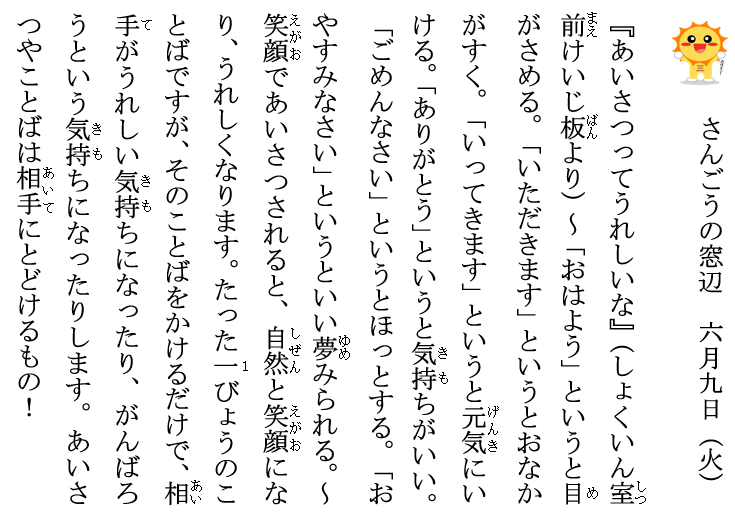 さんごうの窓辺　六月九日（火）
『あいさつってうれしいな』（しょくいん室
前けいじ板より）～「おはよう」というと目
がさめる。「いただきます」というとおなか
がすく。「いってきます」というと元気にい
ける。「ありがとう」というと気持ちがいい。
「ごめんなさい」というとほっとする。「お
やすみなさい」というといい夢みられる。～
笑顔であいさつされると、自然と笑顔にな
り、うれしくなります。たった一びょうのこ
とばですが、そのことばをかけるだけで、相
手がうれしい気持ちになったり、がんばろ
うという気持ちになったりします。あいさ
つやことばは相手にとどけるもの！